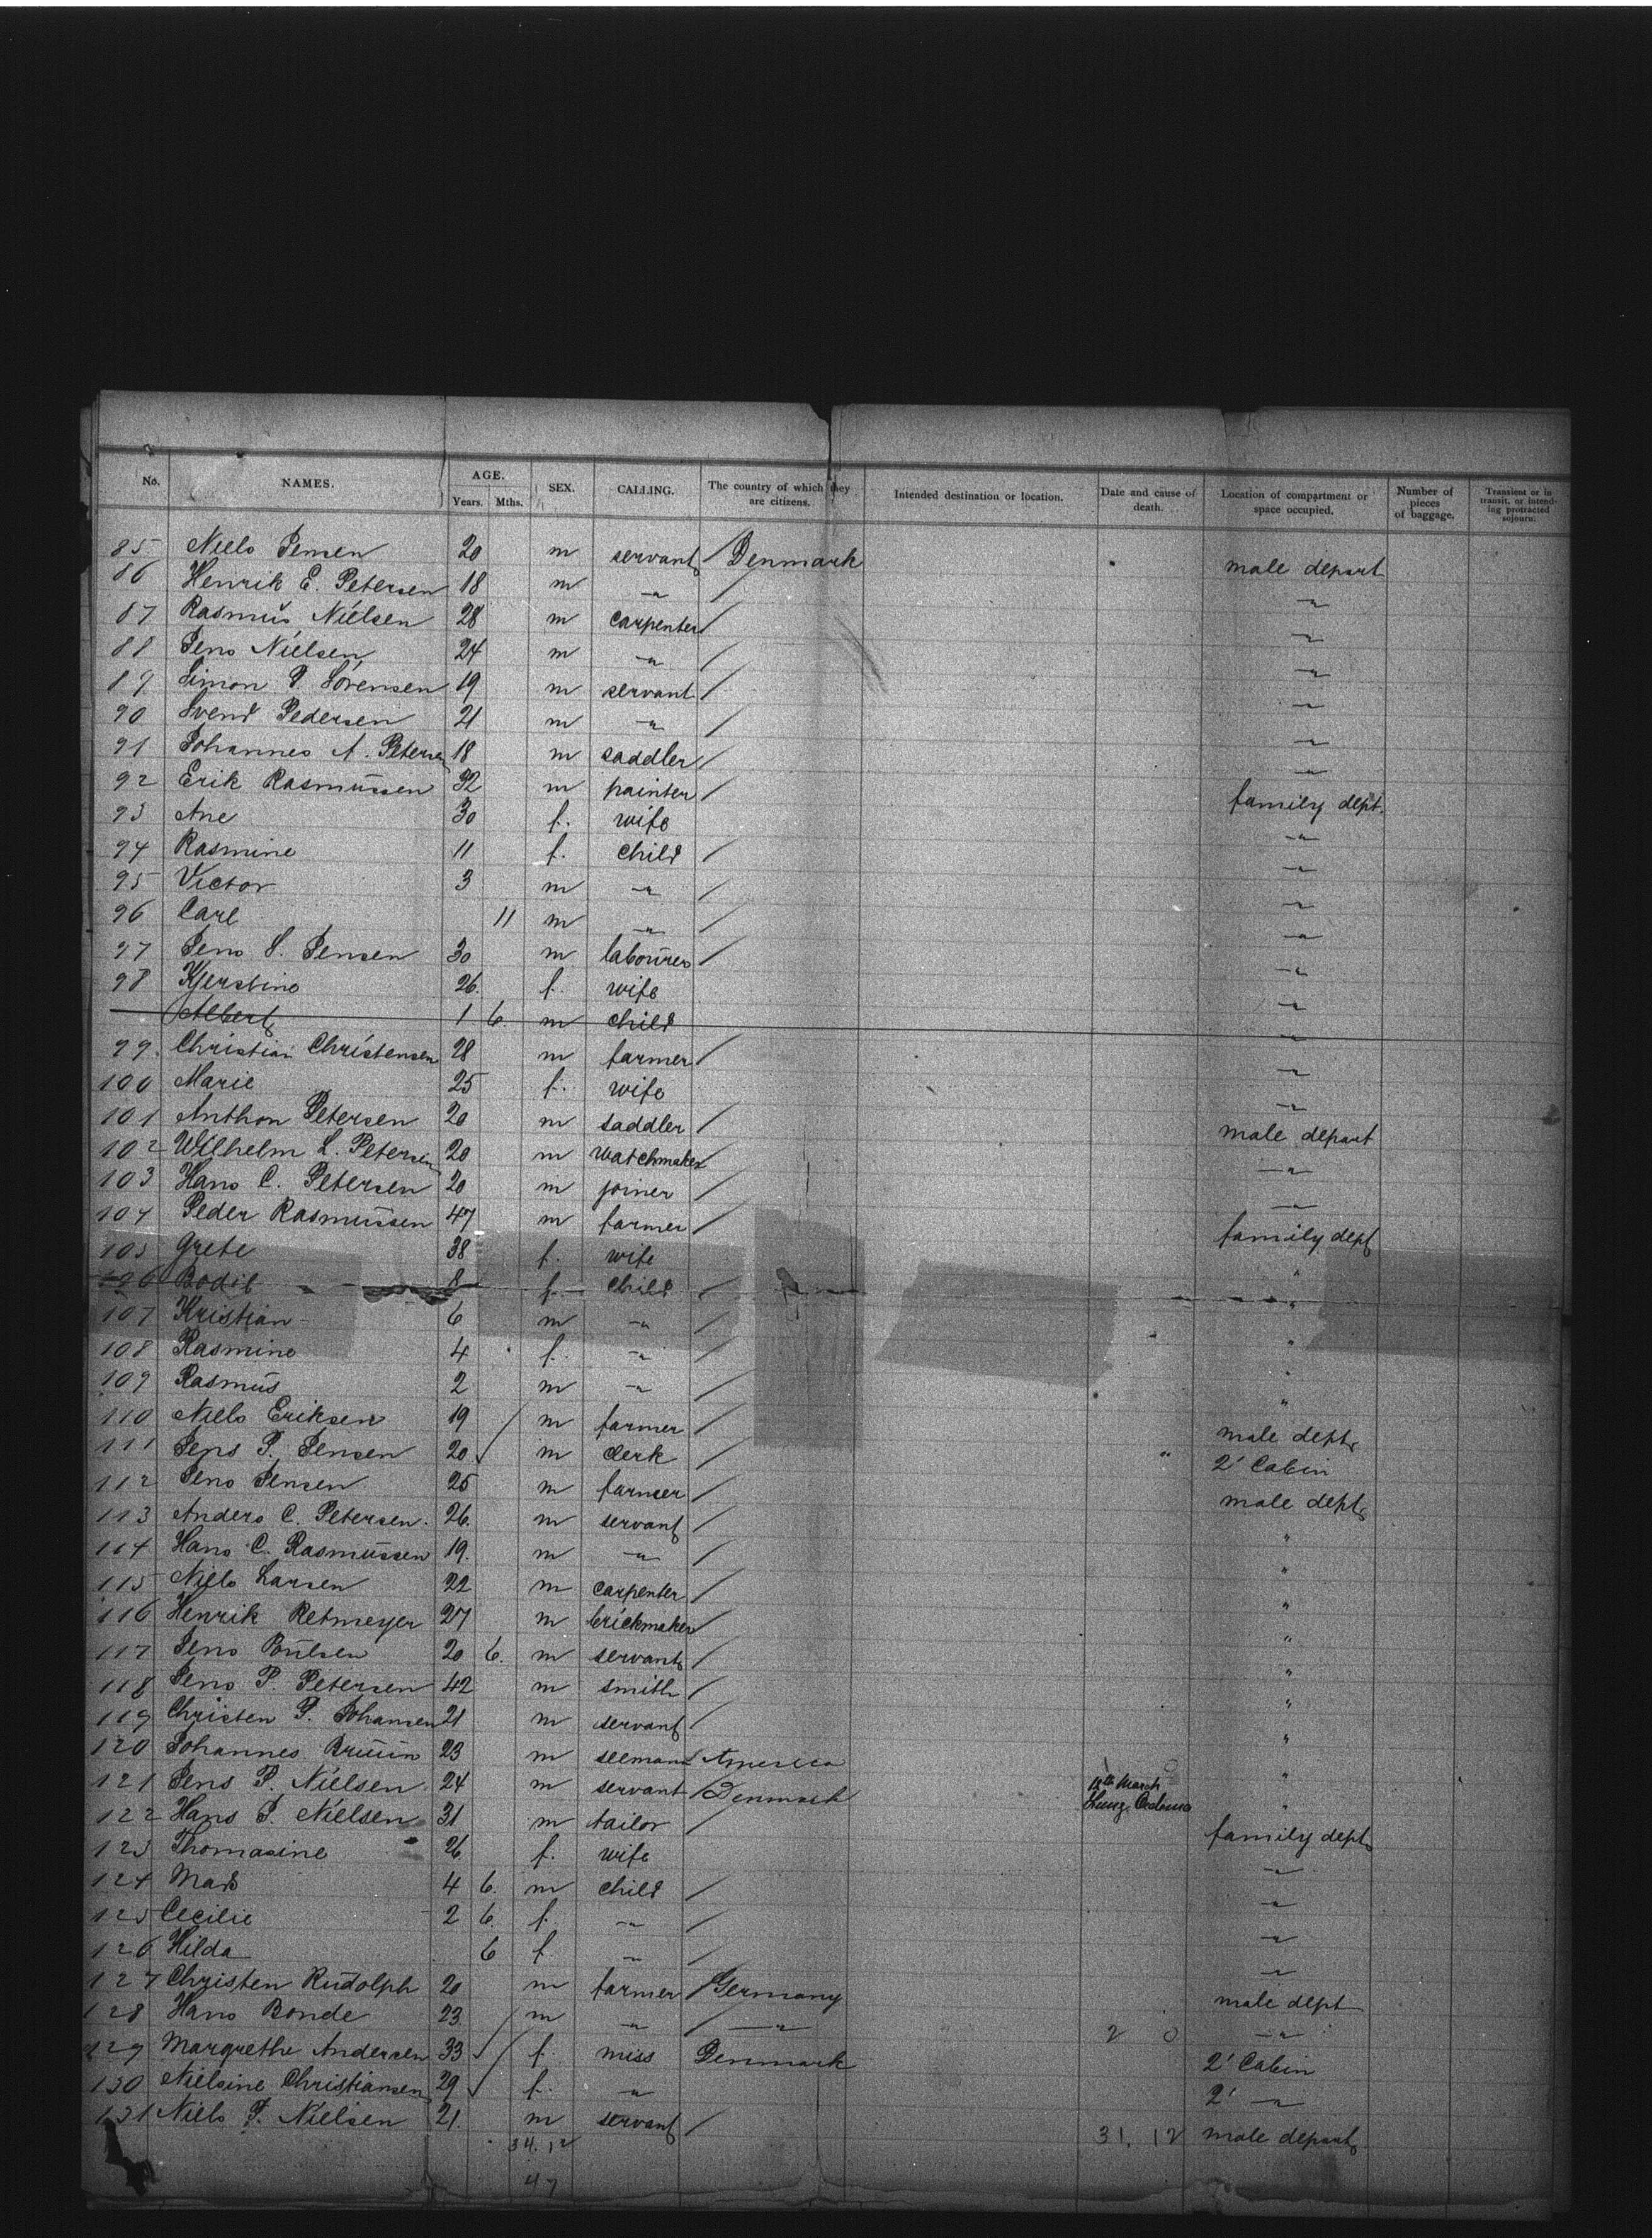 No. NAMES. AGE. Years. Mths. SEX. CALLING. The country of which they are citizens. Intended destination or location. Date and cause of death. Location of compartment or space occupied. Number of pieces of baggage. Transient or in transit, or intending protracted sojourn.
85 Niels Jensen 20 m servant / Denmark male depart
86 Henrik E. Petersen 18 m —"— / —"—
87 Rasmus Nielsen 28 m carpenter / —"—
88 Jens Nielsen 24 m —"— / —"—
89 Simon P. Sörensen 19 m servant / —"—
90 Svend Pedersen 21 m —"— / —"—
91 Johannes A. Petersen 18 m saddler / —"—
92 Erik Rasmussen 32 m painter / family dept.
93 Ane 30 f. wife —"—
94 Rasmine 11 f. child / —"—
95 Victor 3 m —"— / —"—
96 Carl 11 m —"— / —"—
97 Jens S. Jensen 30 m labourer / —"—
98 Kjerstine 26. f. wife —"—
Albert 1 6. m child —"—
99. Christian Christensen 28 m farmer / —"—
100 Marie 25 f. wife —"—
101 Anthon Petersen 20 m saddler / male depart
102 Wilhelm L. Petersen 20 m watchmaker —"—
103 Hans C. Petersen 20 m joiner / —"—
104 Peder Rasmussen 47 m farmer / family dept
105 Grete 38 f. wife "
106 Bodil 8 f child / "
107 Kristian 6 m —"— / "
108 Rasmine 4 f. —"— / "
109 Rasmus 2 m —"— / "
110 Niels Eriksen 19 / m farmer / male dept.
111 Jens P. Jensen 20 / m clerk / " 2' Cabin
112 Jens Jensen 25 m farmer / male dept.
113 Anders C. Petersen. 26. m servant / "
114 Hans C. Rasmussen 19. m —"— / "
115 Niels Larsen 22 m carpenter / "
116 Henrik Retmeyer 27 m brickmaker / "
117 Jens Poulsen 20 6. m servant / "
118 Jens P. Petersen 42 m smith / "
119 Christen P. Johansen 21 m servant / "
120 Johannes Bruun 23 m seeman America "
121 Jens P. Nielsen 24 m servant / Denmark 12th March Lung. Oedema "
122 Hans P. Nielsen 31 m tailor / family dept
123 Thomasine 26 f. wife —"—
124 Mads 4 6. m child / —"—
125 Cecilie 2 6. f. —"— / —"—
126 Hilda 6 f —"— / —"—
127 Christen Rudolph 20 m farmer / Germany male dept
128 Hans Bonde 23. / m —"— / —"— 2 0 —"—
129 Margrethe Andersen 33 / f. miss Denmark 2' Cabin
130 Nielsine Christiansen 29 / f. —"— 2' —"—
131 Niels P. Nielsen 21. m servant / 31. 12 male depart
34. 12
47